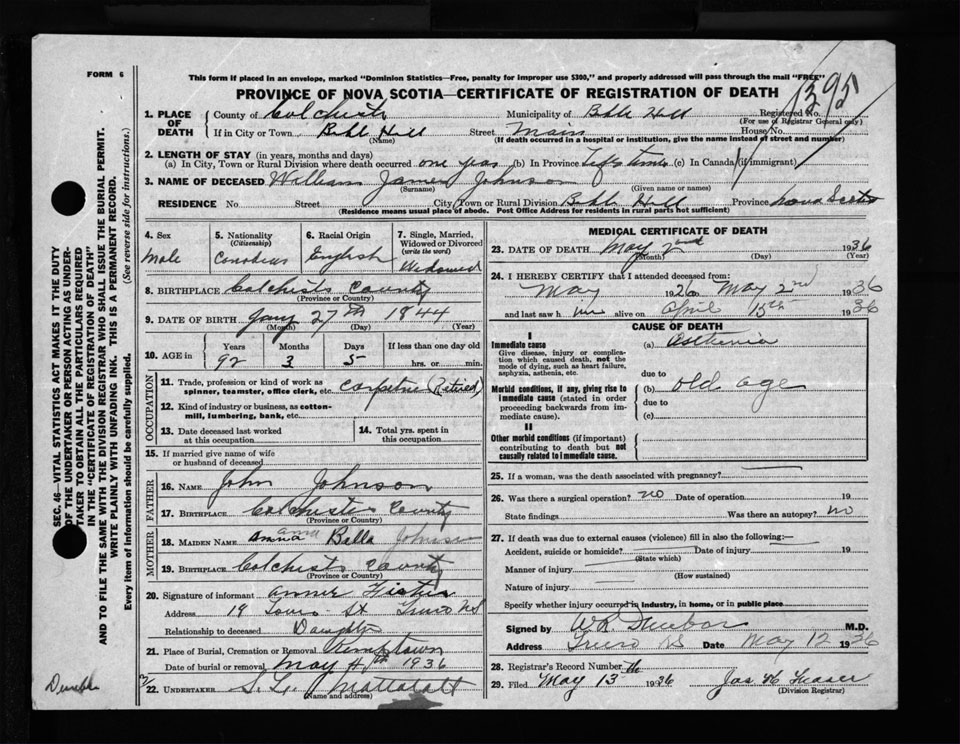 FORM 6
This form if placed in an envelope, marked "Dominion Statistics—Free, penalty for improper use $300," and properly addressed will pass through the mail "FREE"
PROVINCE OF NOVA SCOTIA—CERTIFICATE OF REGISTRATION OF DEATH
1395
1. PLACE OF DEATH
County of Colchester Municipality of Bible Hill Registered No.
(For use of Registrar General only)
If in City or Town Bible Hill Street Main House No.
(Name) (If death occurred in a hospital or institution, give the name instead of street and number)
2. LENGTH OF STAY (in years, months and days)
(a) In City, Town or Rural Division where death occurred one year (b) In Province Life time (c) In Canada (if immigrant)
3. NAME OF DECEASED William James Johnson
(Surname) (Given name or names)
RESIDENCE No. Street City, Town or Rural Division Bible Hill Province Nova Scotia
(Residence means usual place of abode. Post Office Address for residents in rural parts not sufficient)
4. Sex Male
5. Nationality (Citizenship) Canadian
6. Racial Origin English
7. Single, Married, Widowed or Divorced (write the word) Widowed
8. BIRTHPLACE Colchester County
(Province or Country)
9. DATE OF BIRTH Jany 27th 1844
(Month) (Day) (Year)
10. AGE in Years Months Days If less than one day old
92 3 5 hrs. or min.
OCCUPATION
11. Trade, profession or kind of work as spinner, teamster, office clerk, etc. Carpenter (Retired)
12. Kind of industry or business, as cotton-mill, lumbering, bank, etc.
13. Date deceased last worked at this occupation
14. Total yrs. spent in this occupation
15. If married give name of wife or husband of deceased
FATHER
16. NAME John Johnson
17. BIRTHPLACE Colchester County
(Province or Country)
MOTHER
18. MAIDEN NAME Bella Johnson
19. BIRTHPLACE Colchester County
(Province or Country)
20. Signature of informant Annie Fisher
Address 19 St Truro NS
Relationship to deceased Daughter
21. Place of Burial, Cremation or Removal Kemptown
Date of burial or removal May 4th 1936
22. UNDERTAKER S. L. Mattatall
(Name and address)
MEDICAL CERTIFICATE OF DEATH
23. DATE OF DEATH May 2nd 1936
(Month) (Day) (Year)
24. I HEREBY CERTIFY that I attended deceased from:
May 1926 to May 2nd 1936
and last saw him alive on April 15th 1936
CAUSE OF DEATH
I
Immediate cause
Give disease, injury or complication which caused death, not the mode of dying, such as heart failure, asphyxia, asthenia, etc.
(a) Asthenia
due to
Morbid conditions, if any, giving rise to immediate cause (stated in order proceeding backwards from immediate cause).
(b) old age
due to
(c)
II
Other morbid conditions (if important) contributing to death but not causally related to immediate cause.
25. If a woman, was the death associated with pregnancy?
26. Was there a surgical operation? no Date of operation 19
State findings Was there an autopsy? no
27. If death was due to external causes (violence) fill in also the following:—
Accident, suicide or homicide? Date of injury 19
(State which)
Manner of injury
(How sustained)
Nature of injury
Specify whether injury occurred in industry, in home, or in public place
Signed by M.D.
Address Truro NS Date May 12 1936
28. Registrar's Record Number
29. Filed May 13th 1936 Jas
(Division Registrar)
SEC. 46—VITAL STATISTICS ACT MAKES IT THE DUTY OF THE UNDERTAKER OR PERSON ACTING AS UNDERTAKER TO OBTAIN ALL THE PARTICULARS REQUIRED IN THE "CERTIFICATE OF REGISTRATION OF DEATH" AND TO FILE THE SAME WITH THE DIVISION REGISTRAR WHO SHALL ISSUE THE BURIAL PERMIT.
WRITE PLAINLY WITH UNFADING INK. THIS IS A PERMANENT RECORD.
Every item of information should be carefully supplied. (See reverse side for instructions.)